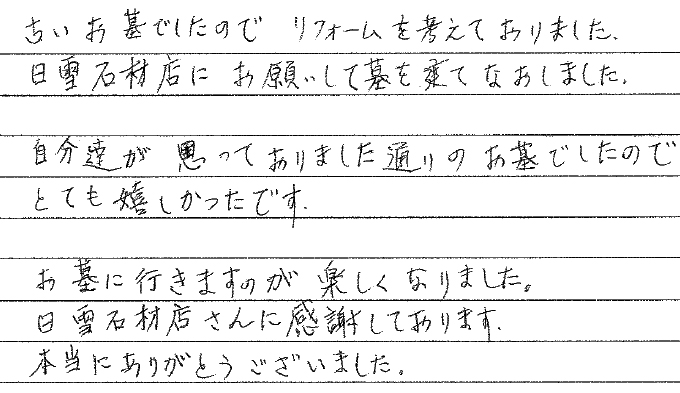 古いお墓でしたので リフォームを考えておりました.
日雪石材店に お願いして墓を建てなおしました.
自分達が 思っておりました通りのお墓でしたので
とても嬉しかったです.
お墓に行きますのが 楽しくなりました。
日雪石材店さんに感謝しております.
本当にありがとうございました.